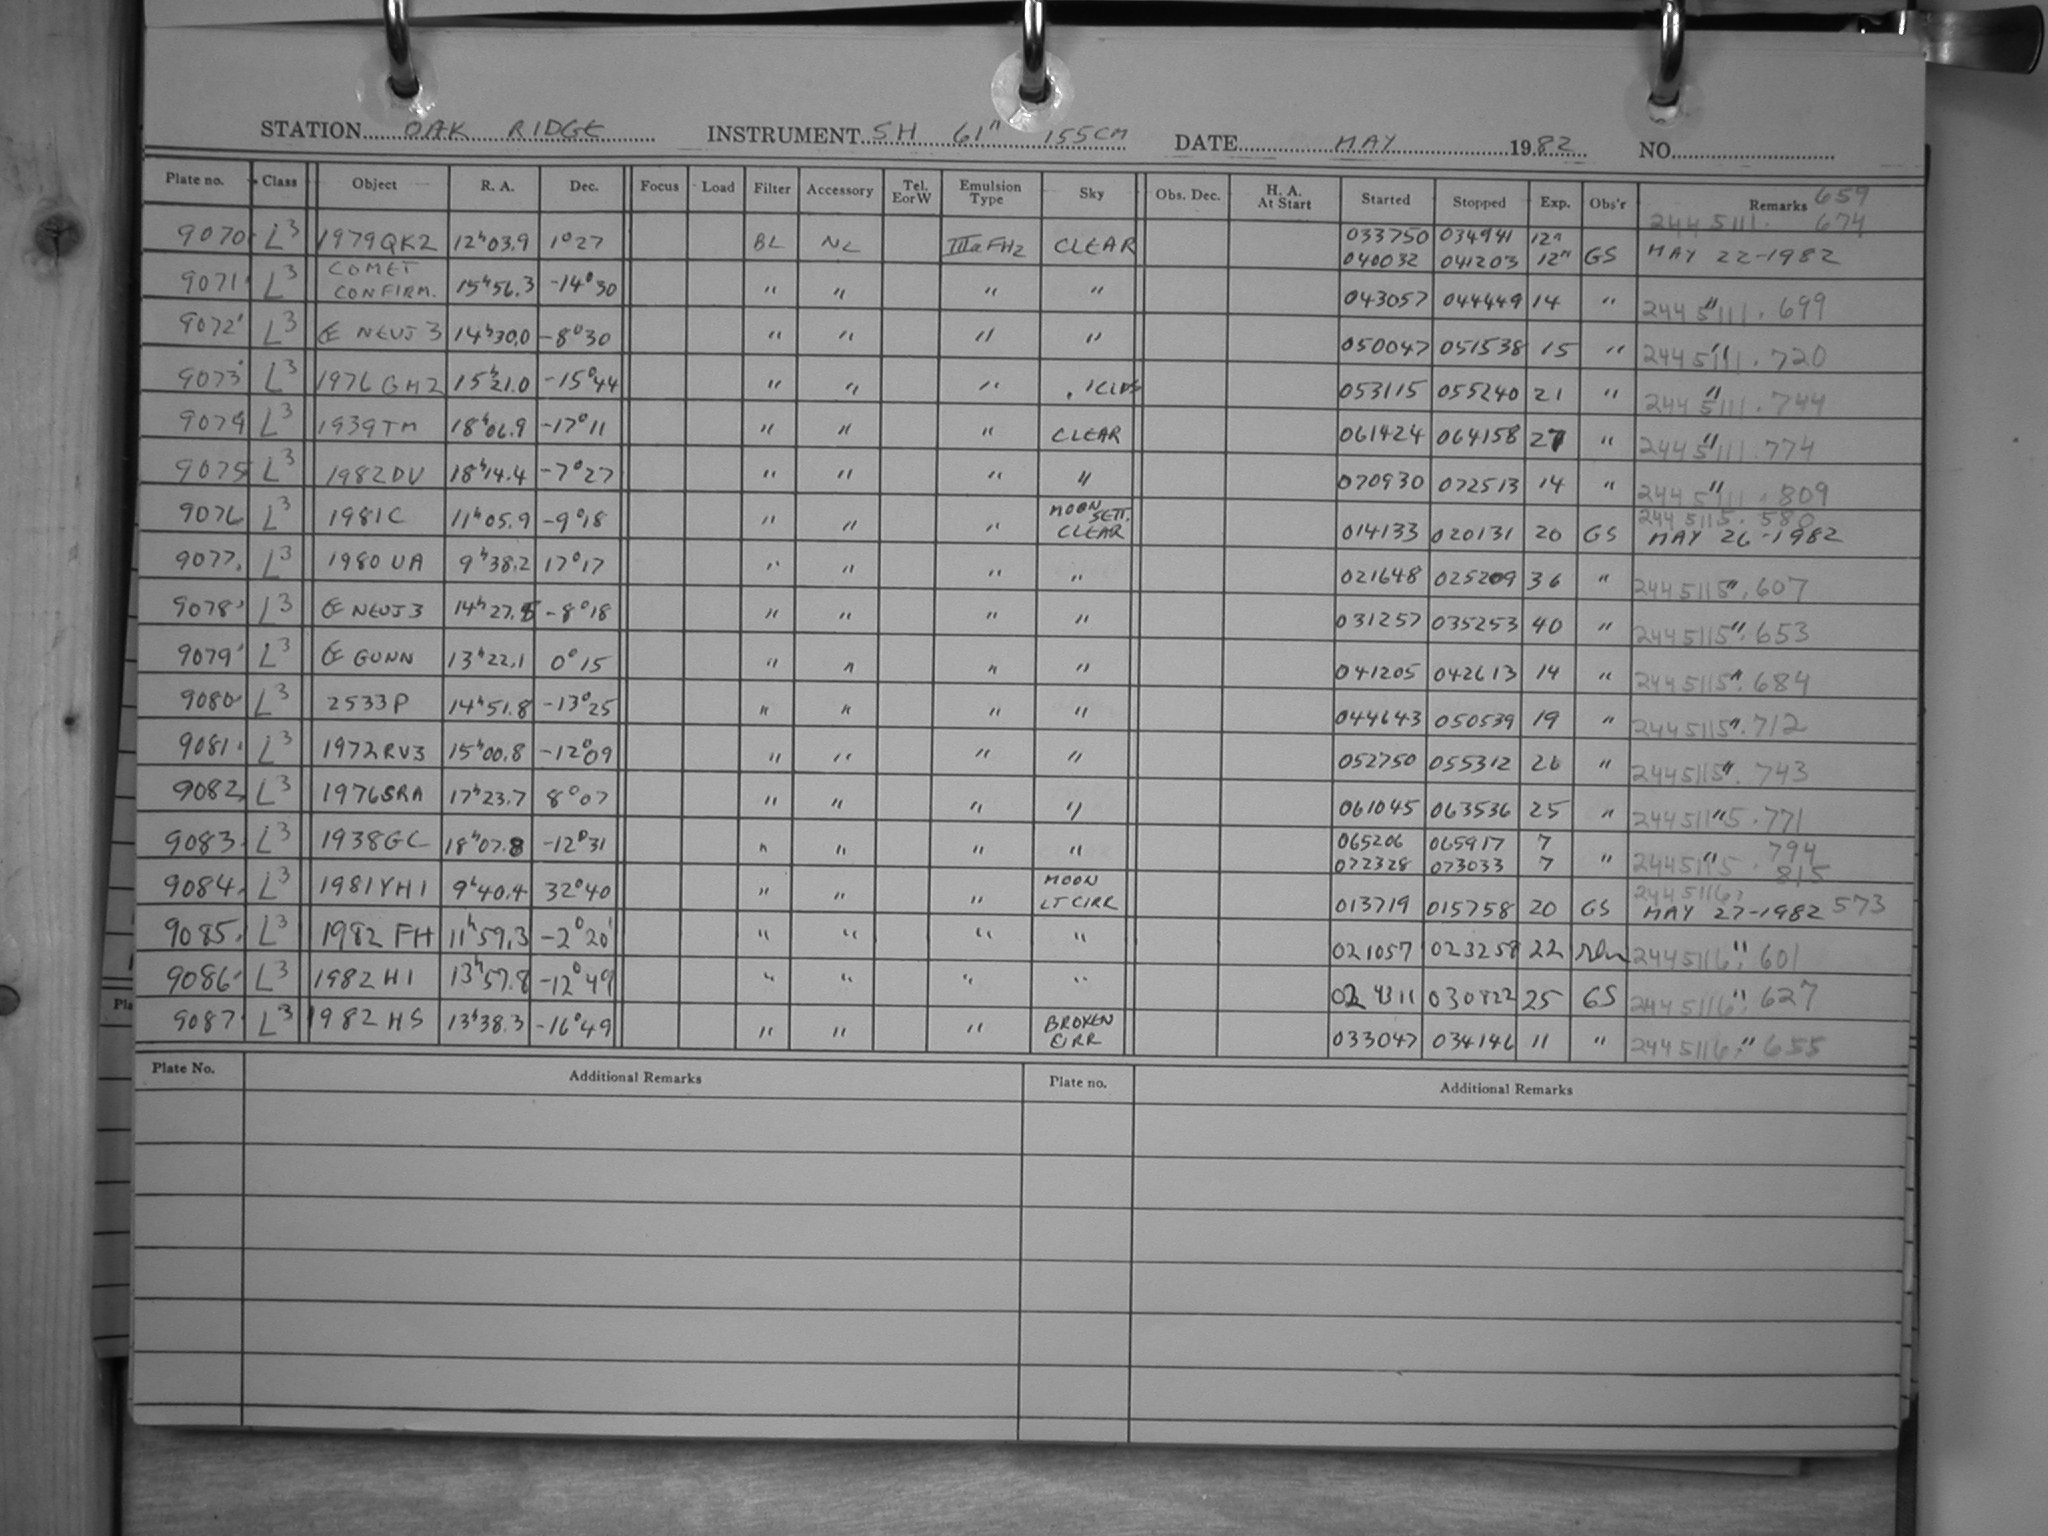 STATION OAK RIDGE INSTRUMENT SH 61" 155CM DATE MAY 1982 NO.
Plate no. Class Object R. A. Dec. Focus Load Filter Accessory Tel. EorW Emulsion Type Sky Obs. Dec. H. A. At Start Started Stopped Exp. Obs'r Remarks 659
2445111. 674
9070 L3 1979QK2 12h03.9 1°27 BL NL IIIaFH2 CLEAR 033750 034941 12m
040032 041203 12m GS MAY 22-1982
9071 L3 COMET CONFIRM. 15h56.3 -14°30 " " " " 043057 044449 14 " 2445111.699 "
9072 L3 Œ NEUJ3 14h30.0 -8°30 " " " " 050047 051538 15 " 2445111.720 "
9073 L3 1976GH2 15h21.0 -15°44 " " " .1CLDS 053115 055240 21 " 2445111.744 "
9074 L3 1939TM 18h06.9 -17°11 " " " CLEAR 061424 064158 27 " 2445111.774 "
9075 L3 1982DV 18h14.4 -7°27 " " " " 070930 072513 14 " 2445111.809 "
9076 L3 1981C 11h05.9 -9°18 " " " MOON SETT. CLEAR 014133 020131 20 GS 2445115.580 MAY 26-1982
9077 L3 1980UA 9h38.2 17°17 " " " " 021648 025209 36 " 2445115.607 "
9078 L3 Œ NEUJ3 14h27.8 -8°18 " " " " 031257 035253 40 " 2445115.653 "
9079 L3 Œ GUNN 13h22.1 0°15 " " " " 041205 042613 14 " 2445115.684 "
9080 L3 2533P 14h51.8 -13°25 " " " " 044643 050539 19 " 2445115.712 "
9081 L3 1972RV3 15h00.8 -12°09 " " " " 052750 055312 26 " 2445115.743 "
9082 L3 1976SRA 17h23.7 8°07 " " " " 061045 063536 25 " 2445115.771 "
9083 L3 1938GC 18h07.8 -12°31 " " " " 065206 065917 7 794
072328 073033 7 " 2445115.815 "
9084 L3 1981YH1 9h40.4 32°40 " " " MOON LT CIRR 013719 015758 20 GS 2445116. MAY 27-1982 573
9085 L3 1982 FH 11h59.3 -2°20' " " " " 021057 023258 22 2445116.601 "
9086 L3 1982 HI 13h57.8 -12°49 " " " " 024311 030822 25 GS 2445116.627 "
9087 L3 1982 HS 13h38.3 -16°49 " " " BROKEN CIRR 033047 034146 11 " 2445116.655 "
Plate No. Additional Remarks Plate no. Additional Remarks